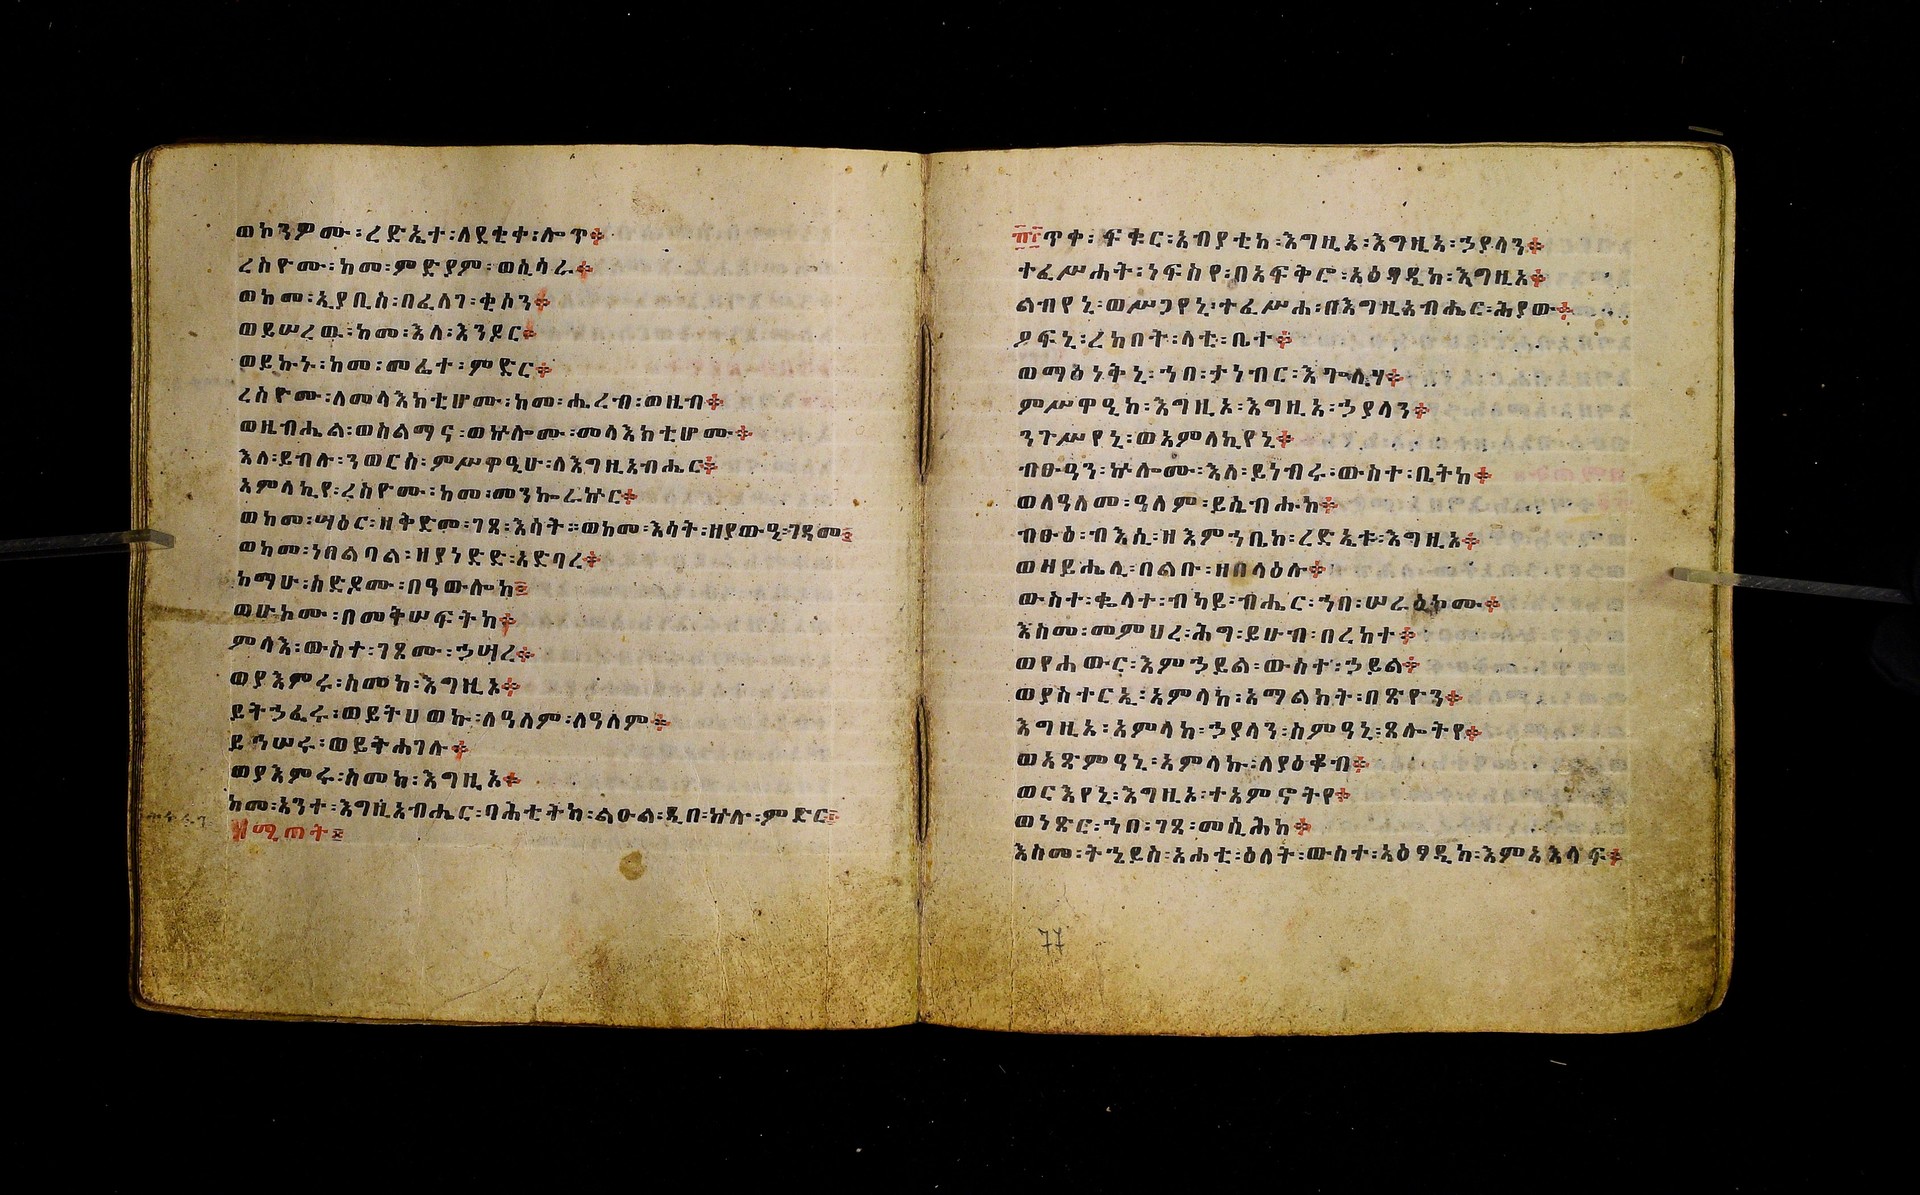 ወኮንዎሙ፡ረድኤተ፡ለደቂቀ፡ሎጥ፨
ረስዮሙ፡ከመ፡ምድያም፡ወሲሳራ፨
ወከመ፡ኢያቢስ፡በፈለገ፡ቂሶን፨
ወይሠረዉ፡ከመ፡እለ፡እንዶር፨
ወይኩኑ፡ከመ፡መሬተ፡ምድር፨
ረስዮሙ፡ለመላእክቲሆሙ፡ከመ፡ሔረብ፡ወዚብ፨
ወዜብሔል፡ወስልማና፡ወኵሎሙ፡መላእክቲሆሙ፨
እለ፡ይብሉ፡ንወርስ፡ምሥዋዒሁ፡ለእግዚአብሔር፨
አምላኪየ፡ረስዮሙ፡ከመ፡መንኰራኵር፨
ወከመ፡ሣዕር፡ዘቅድመ፡ገጸ፡እሳት፡፡ወከመ፡እሳት፡ዘያውዒ፡ገዳመ፨
ወከመ፡ነበልባል፡ዘያነድድ፡አድባረ፨
ከማሁ፡ስድዶሙ፡በዓውሎከ፨
ወሁኮሙ፡በመቅሠፍትከ፨
ምላእ፡ውስተ፡ገጾሙ፡ኃሣረ፨
ወያእምሩ፡ስመከ፡እግዚአ፨
ይትኃፈሩ፡ወይትሀወኩ፡ለዓለም፡ለዓለም፨
ይኅሠሩ፡ወይትሐገሉ፨
ወያእምሩ፡ስመከ፡እግዚአ፨
ከመ፡አንተ፡እግዚአብሔር፡ባሕቲትከ፡ልዑል፡ዲበ፡ኵሉ፡ምድር፨
ሚጠት፨
፹፫ጥቀ፡ፍቁር፡አብያቲከ፡እግዚኦ፡እግዚአ፡ኃያላን፨
ተፈሥሐት፡ነፍስየ፡በአፍቅሮ፡አዕፃዲከ፡እግዚአ፨
ልብየኒ፡ወሥጋየኒ፡ተፈሥሐ፡በእግዚአብሔር፡ሕያው፨
ዖፍኒ፡ረከበት፡ላቲ፡ቤተ፨
ወማዕነቅኒ፡ኀበ፡ታነብር፡እጐሊሃ፨
ምሥዋዒከ፡እግዚአ፡እግዚአ፡ኃያላን፨
ንጉሥየኒ፡ወአምላኪየኒ፨
ብፁዓን፡ኵሎሙ፡እለ፡ይነብሩ፡ውስተ፡ቤትከ፨
ወለዓለመ፡ዓለም፡ይሴብሑከ፨
ብፁዕ፡ብእሲ፡ዘእምኀቤከ፡ረድኤቱ፡እግዚአ፨
ወዘይሔሊ፡በልቡ፡ዘበላዕሉ፨
ውስተ፡ቈላተ፡ብካይ፡ብሔር፡ኀበ፡ሠራዕኮሙ፨
እስመ፡መምህረ፡ሕግ፡ይሁብ፡በረከተ፨
ወየሐውር፡እምኃይል፡ውስተ፡ኃይል፨
ወያስተርኢ፡አምላከ፡አማልክት፡በጽዮን፨
እግዚአ፡አምላከ፡ኃያላን፡ስምዓኒ፡ጸሎትየ፨
ወአጽምዓኒ፡አምላኩ፡ለያዕቆብ፨
ወርእየኒ፡እግዚአ፡ተአምኖትየ፨
ወነጽር፡ኀበ፡ገጸ፡መሲሕከ፨
እስመ፡ትኄይስ፡አሐቲ፡ዕለት፡ውስተ፡አዕፃዲከ፡እምአእላፍ፨
77